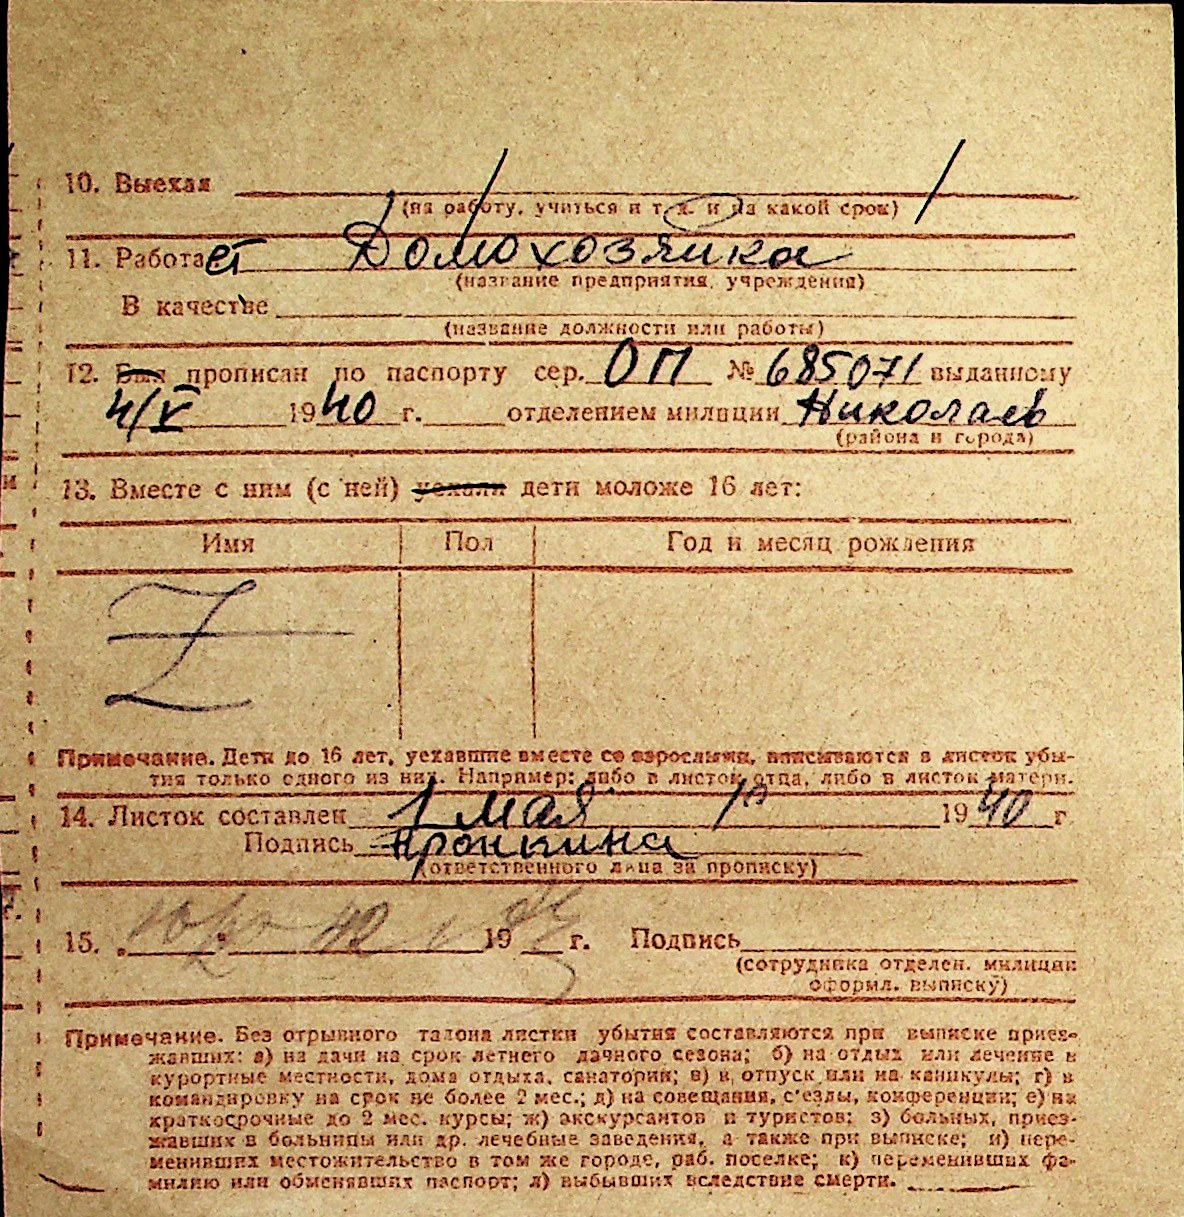 10. Выехал
(на работу, учиться и т д. и на какой срок)
11. Работает Домохозяйка
(название предприятия, учреждения)
В качестве
(название должности или работы)
12. Был прописан по паспорту сер. ОП № 685071 выданному
4/V 1940 г. отделением милиции Николаев
(района и города)
13. Вместе с ним (с ней) уехали дети моложе 16 лет:
Имя Пол Год и месяц рождения
Z
Примечание. Дети до 16 лет, уехавшие вместе со взрослыми, вписываются в листок убы-
тия только одного из них. Например: либо в листок отца, либо в листок матери.
14. Листок составлен 1 мая 1940 г
Подпись Пронкина
(ответственного лица за прописку)
15. 19 г. Подпись
(сотрудника отделен. милиции
оформл. выписку)
Примечание. Без отрывного талона листки убытия составляются при выписке приез-
жавших: а) на дачи на срок летнего дачного сезона; б) на отдых или лечение в
курортные местности, дома отдыха, санатории; в) в отпуск или на каникулы; г) в
командировку на срок не более 2 мес.; д) на совещания, с'езды, конференции; е) на
краткосрочные до 2 мес. курсы; ж) экскурсантов и туристов; з) больных, приез-
жавших в больницы или др. лечебные заведения, а также при выписке; и) пере-
менивших местожительство в том же городе, раб. поселке; к) переменивших фа-
милию или обменявших паспорт; л) выбывших вследствие смерти.